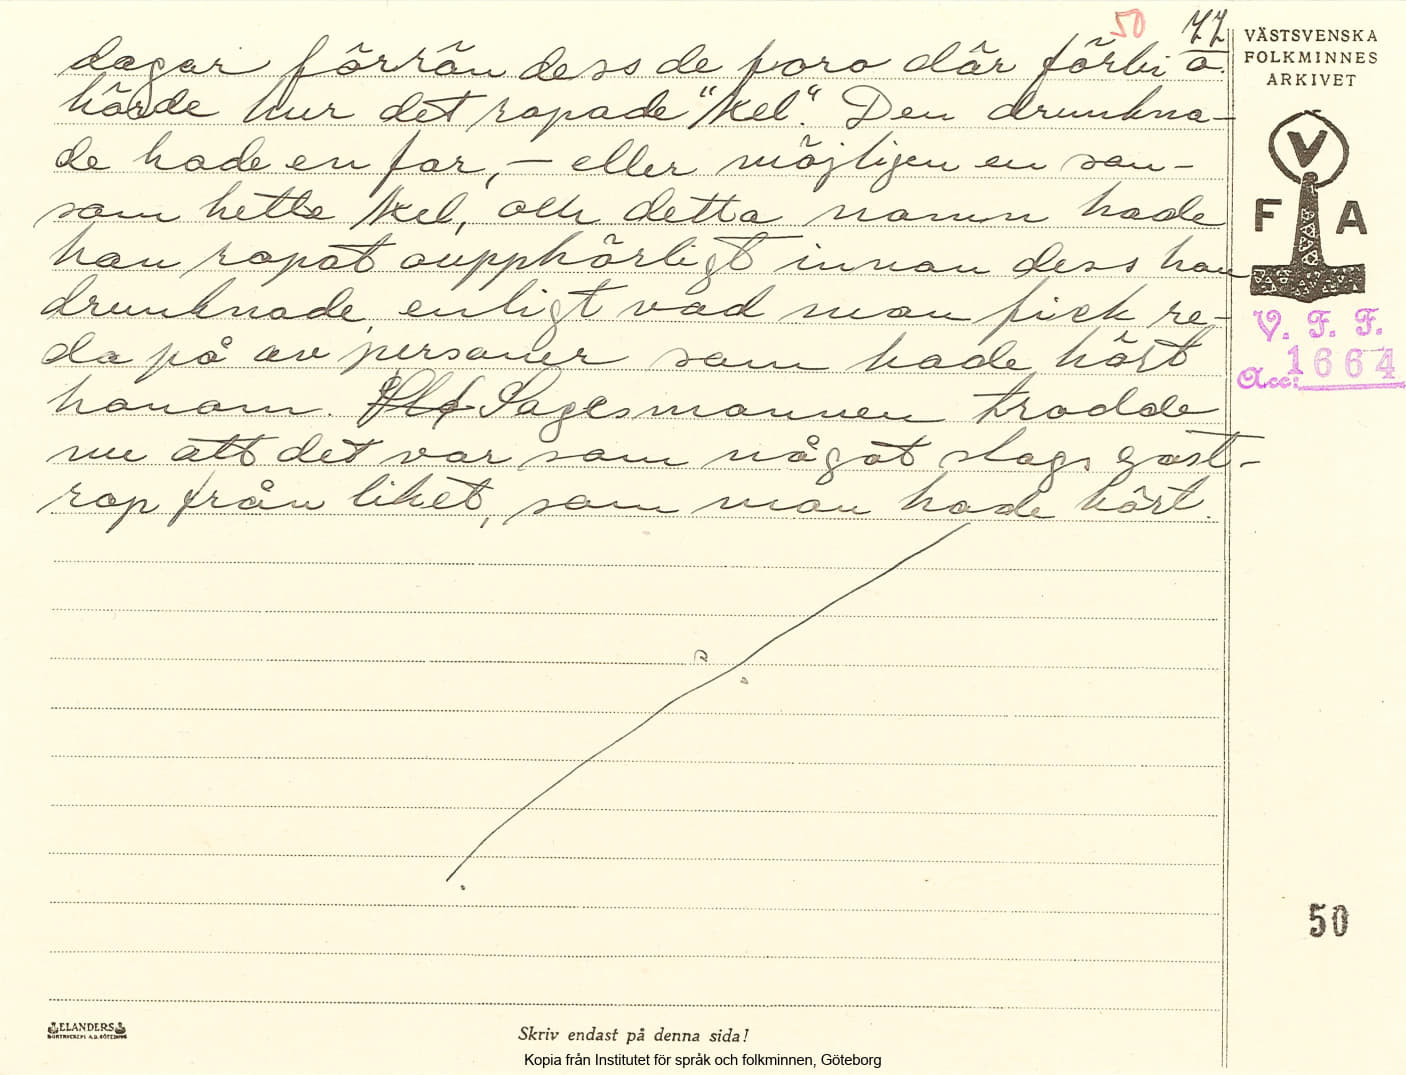 50
77
VÄSTSVENSKA
FOLKMINNES
ARKIVET
dagar förrän dess de foro där förbi o.
hörde hur det ropade "Kel". Den drunkna-
de hade en far, – eller möjligen en son –
som hette Kel, och detta namn hade
han ropat oupphörligt innan dess han
drunknade, enligt vad man fick re-
da på av personer som hade hört
honom. Sagesmannen trodde
nu att det var som något slags gast-
rop från liket, som man hade hört.
V
F A
V. F. F.
Acc: 1664
50
ELANDERS
Skriv endast på denna sida!
Kopia från Institutet för språk och folkminnen, Göteborg